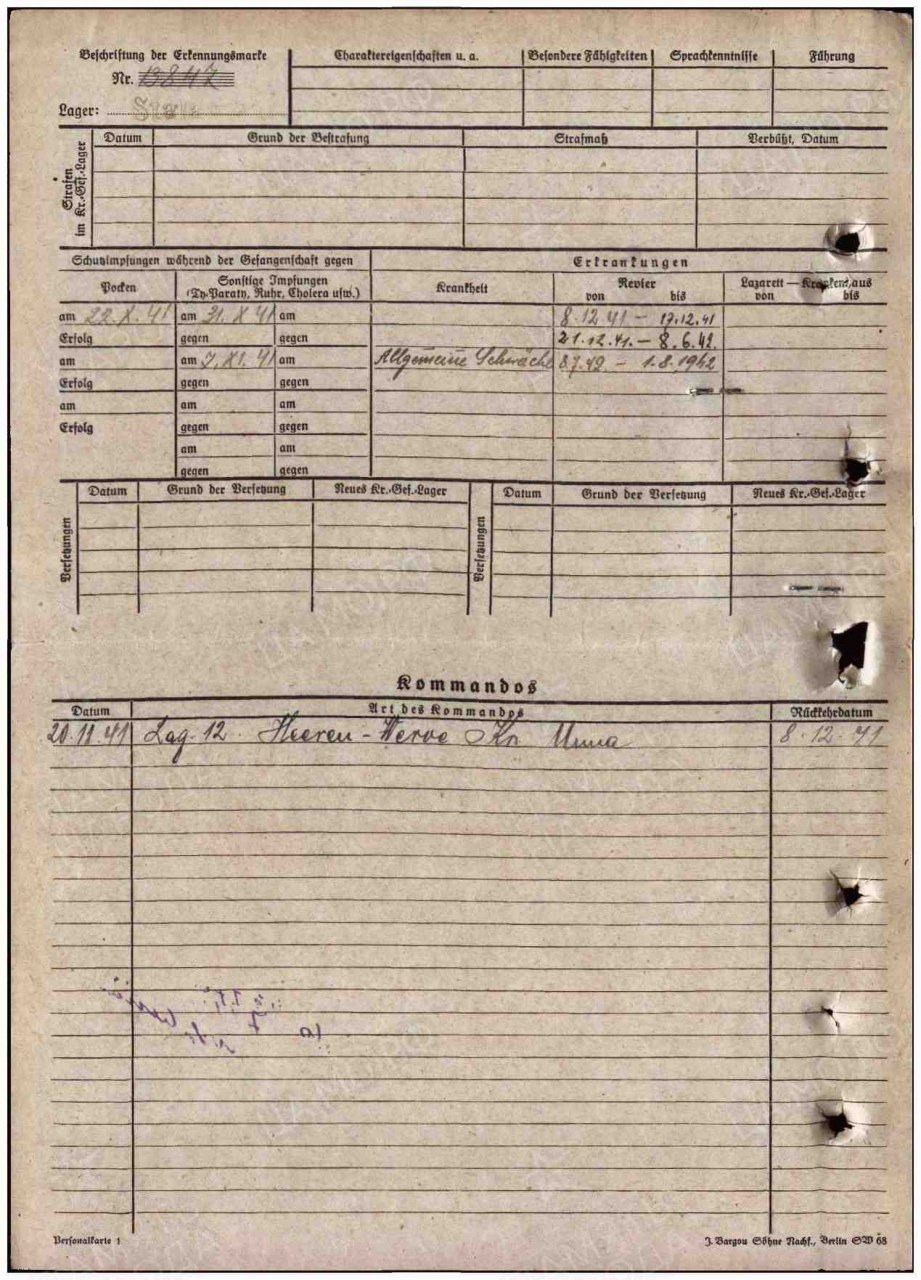 Beschriftung der Erkennungsmarke
Nr. 13847
Lager:
Charaktereigenschaften u. a. Besondere Fähigkeiten Sprachkenntnisse Führung
Strafen im Kr.-Gef.-Lager
Datum Grund der Bestrafung Strafmaß Verbüßt, Datum
Schutzimpfungen während der Gefangenschaft gegen Erkrankungen
Pocken Sonstige Impfungen (Ty-Paraty, Ruhr, Cholera usw.) Krankheit Revier von bis Lazarett — Krankenhaus von bis
am 22.X.41 am 31.X 41 am 8.12 41 – 17.12.41
Erfolg gegen gegen 21.12.41. – 8.6.42.
am am 7.XI.41 am Allgemeine Schwäche 8.7.42 – 1.8.1942
Erfolg gegen gegen
am am am
Erfolg gegen gegen
am am
gegen gegen
Versetzungen
Datum Grund der Versetzung Neues Kr.-Gef.-Lager
Versetzungen
Datum Grund der Versetzung Neues Kr.-Gef.-Lager
Kommandos
Datum Art des Kommandos Rückkehrdatum
20.11.41 Lag. 12 Heeren-Werve Kr. Unna 8.12.41
Personalkarte 1 J. Bargou Söhne Nachf., Berlin SW 68